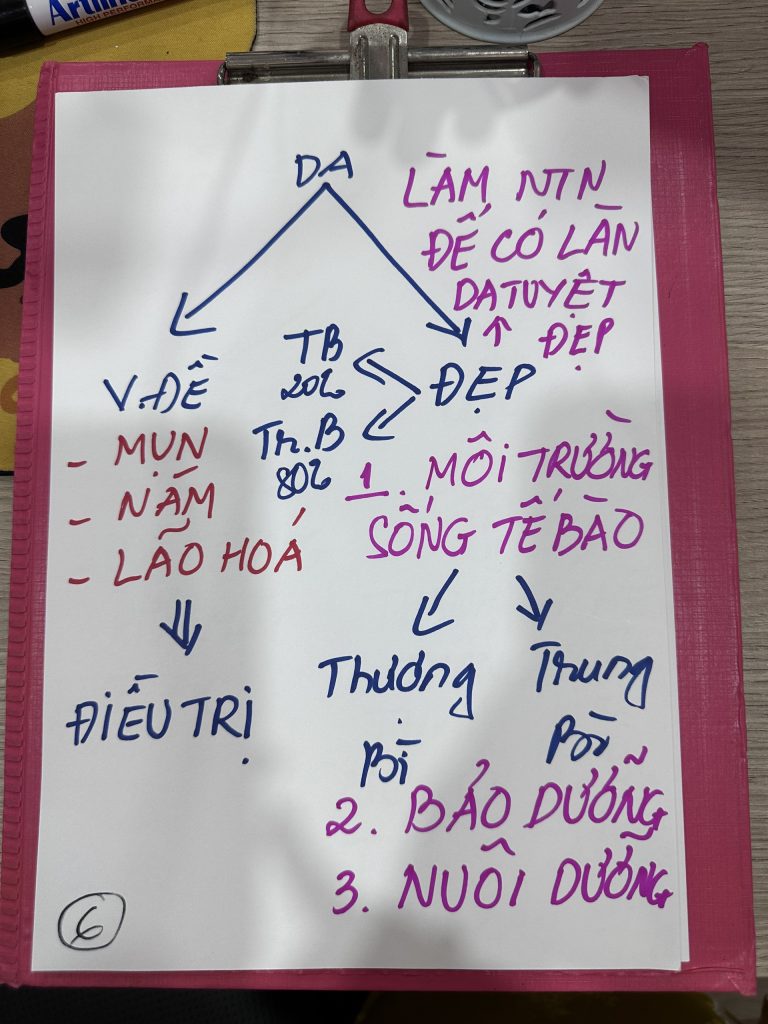 Artline
HIGH PERFORMA
DA
LÀM NTN
ĐỂ CÓ LÀN
DA TUYỆT
ĐẸP
V.ĐỀ
- MỤN
- NÁM
- LÃO HOÁ
ĐIỀU TRỊ
TB
20%
Tr.B
80%
ĐẸP
1. MÔI TRƯỜNG
SỐNG TẾ BÀO
Thượng
Bì
Trung
Bì
2. BẢO DƯỠNG
3. NUÔI DƯỠNG
6